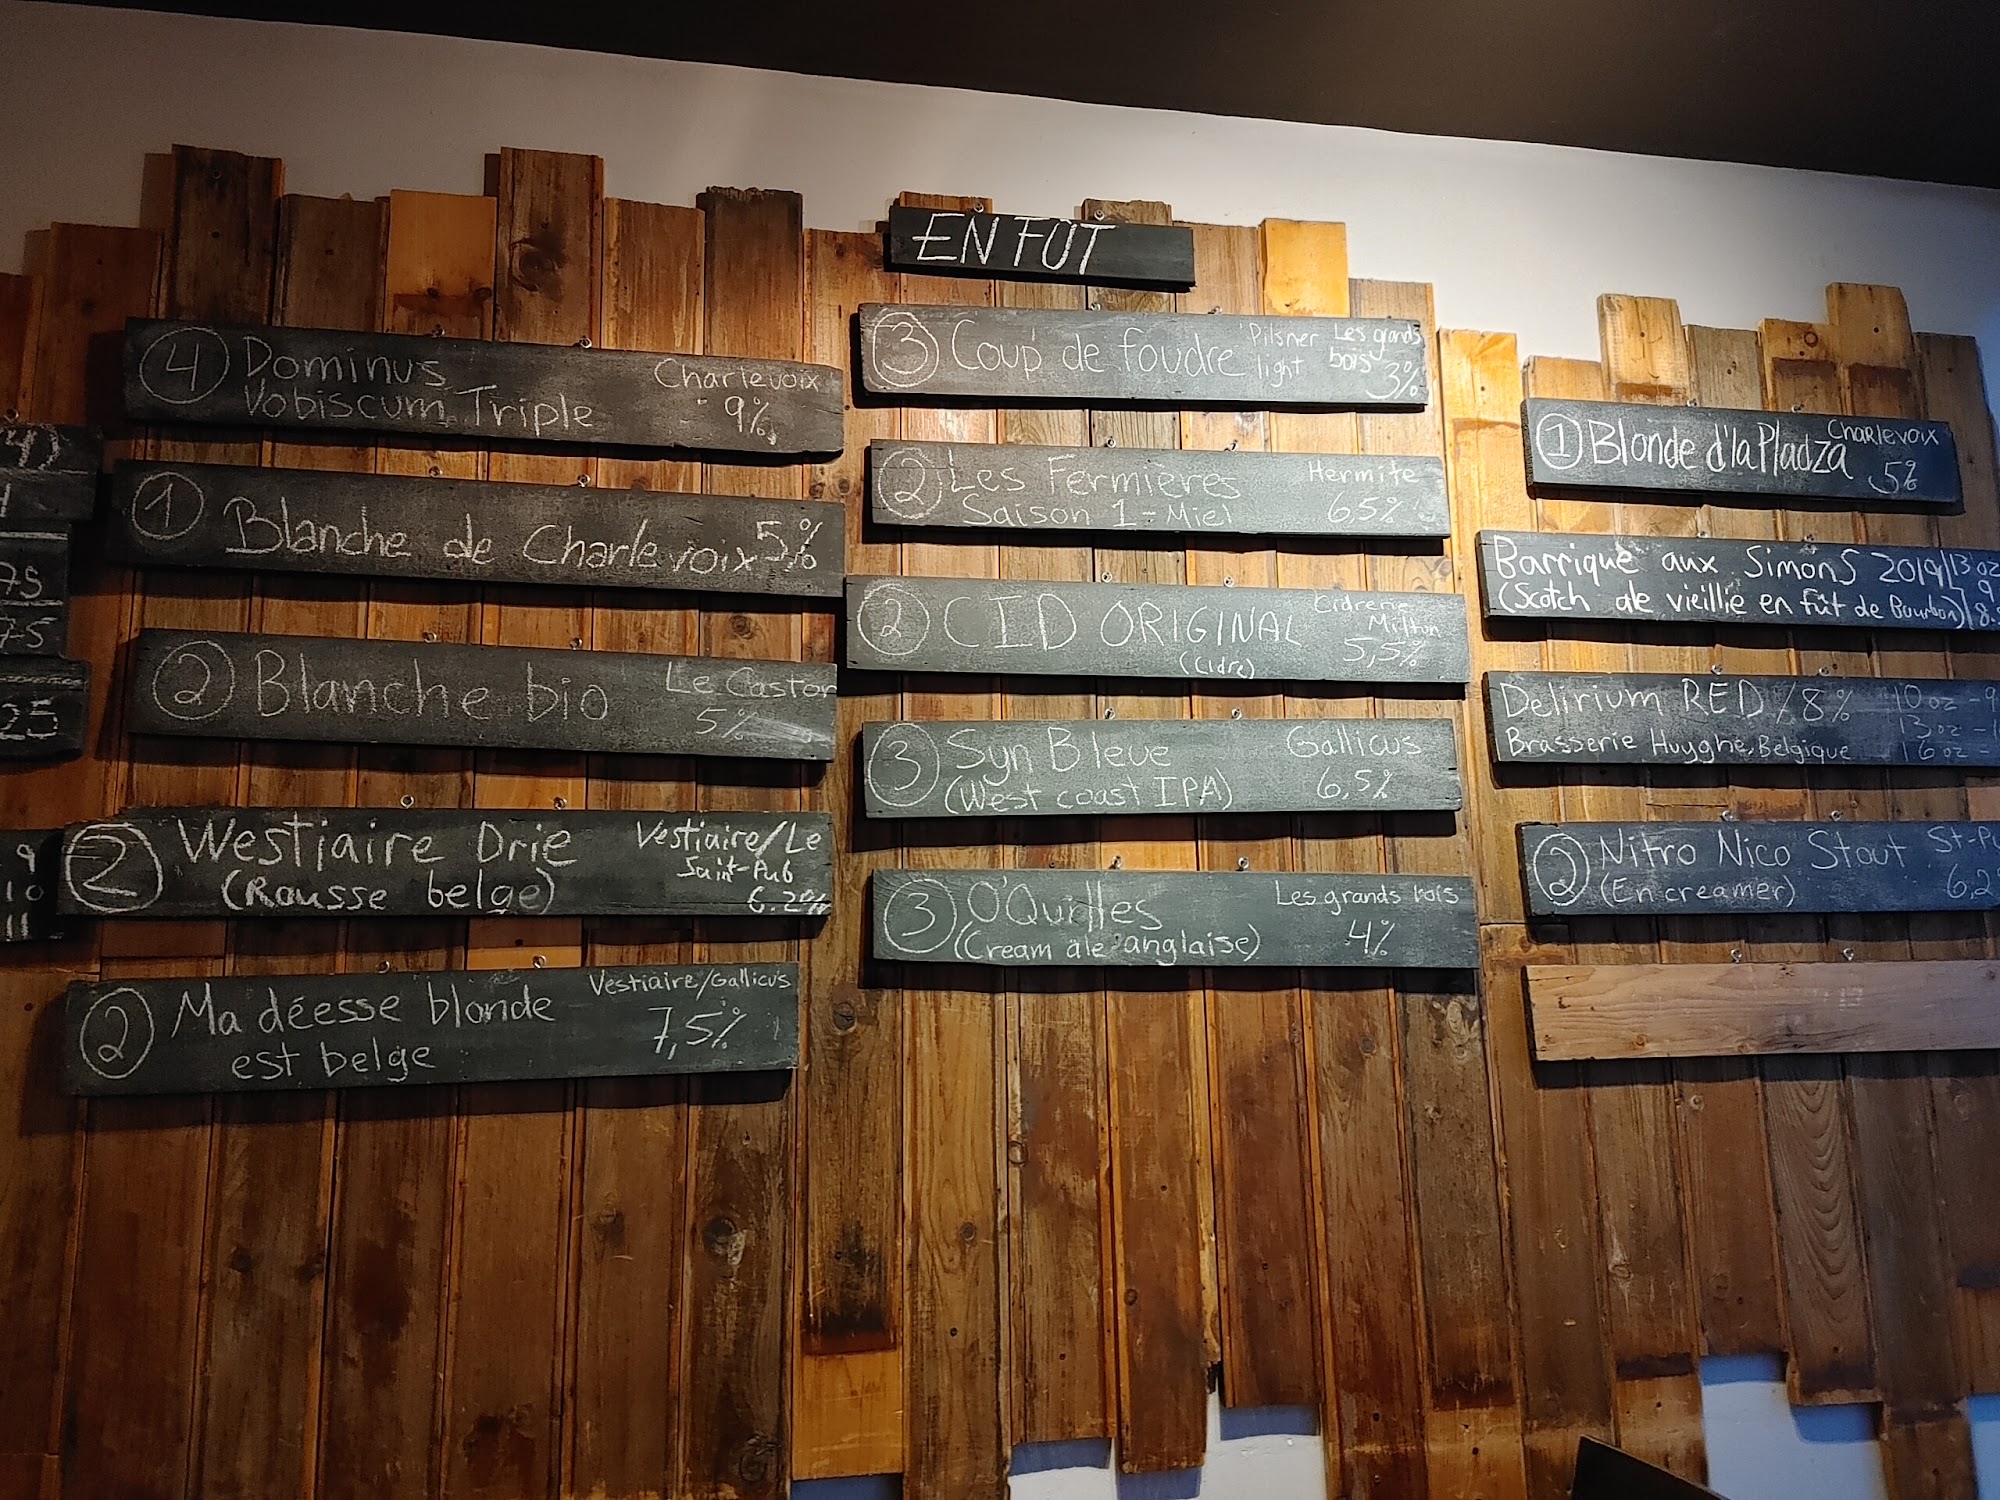 EN FÛT
75
75
25
9
10
11
④ Dominus Charlevoix
Vobiscum Triple 9%
① Blanche de Charlevoix 5%
② Blanche bio Le Castor
5%
② Westiaire Drie Vestiaire/Le
(Rousse belge) Saint-Pub
6.2%
② Ma déesse blonde Vestiaire/Gallicus
est belge 7,5%
③ Coup de foudre Pilsner Les grands
light bois 3%
② Les Fermières Hermite
Saison 1 - Miel 6,5%
② CID ORIGINAL Cidrerie
Milton
(Cidre) 5,5%
③ Syn Bleue Gallicus
(West coast IPA) 6,5%
③ O'Quilles Les grands bois
(Cream ale anglaise) 4%
① Blonde d'la Pladza Charlevoix
5%
Barrique aux Simons 2019 13 oz
(Scotch ale vieillie en fût de Bourbon) 9
Delirium RED / 8% 10 oz - 9
Brasserie Huyghe, Belgique 13 oz -
16 oz -
② Nitro Nico Stout
(En creamer) 6,2